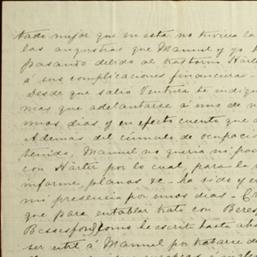 Nada mejor que en esta no tuviera la
las angustias que Manuel y yo
pasando debido al trastorno Harter
á sus complicaciones financieras.
Desde que salió Ventura le indiqu
mas que adelantarse á uno de n
mos dias y en efecto cuento que
Ademas del cúmulo de ocupacio
tenido, Manuel no queria
con Harter por lo cual, para la
informe, planos &a ha sido
mi presencia por unos dias.
que para entablar trato con Beres
Beresford, como le escribí hasta
ser util á Manuel por tratarse de